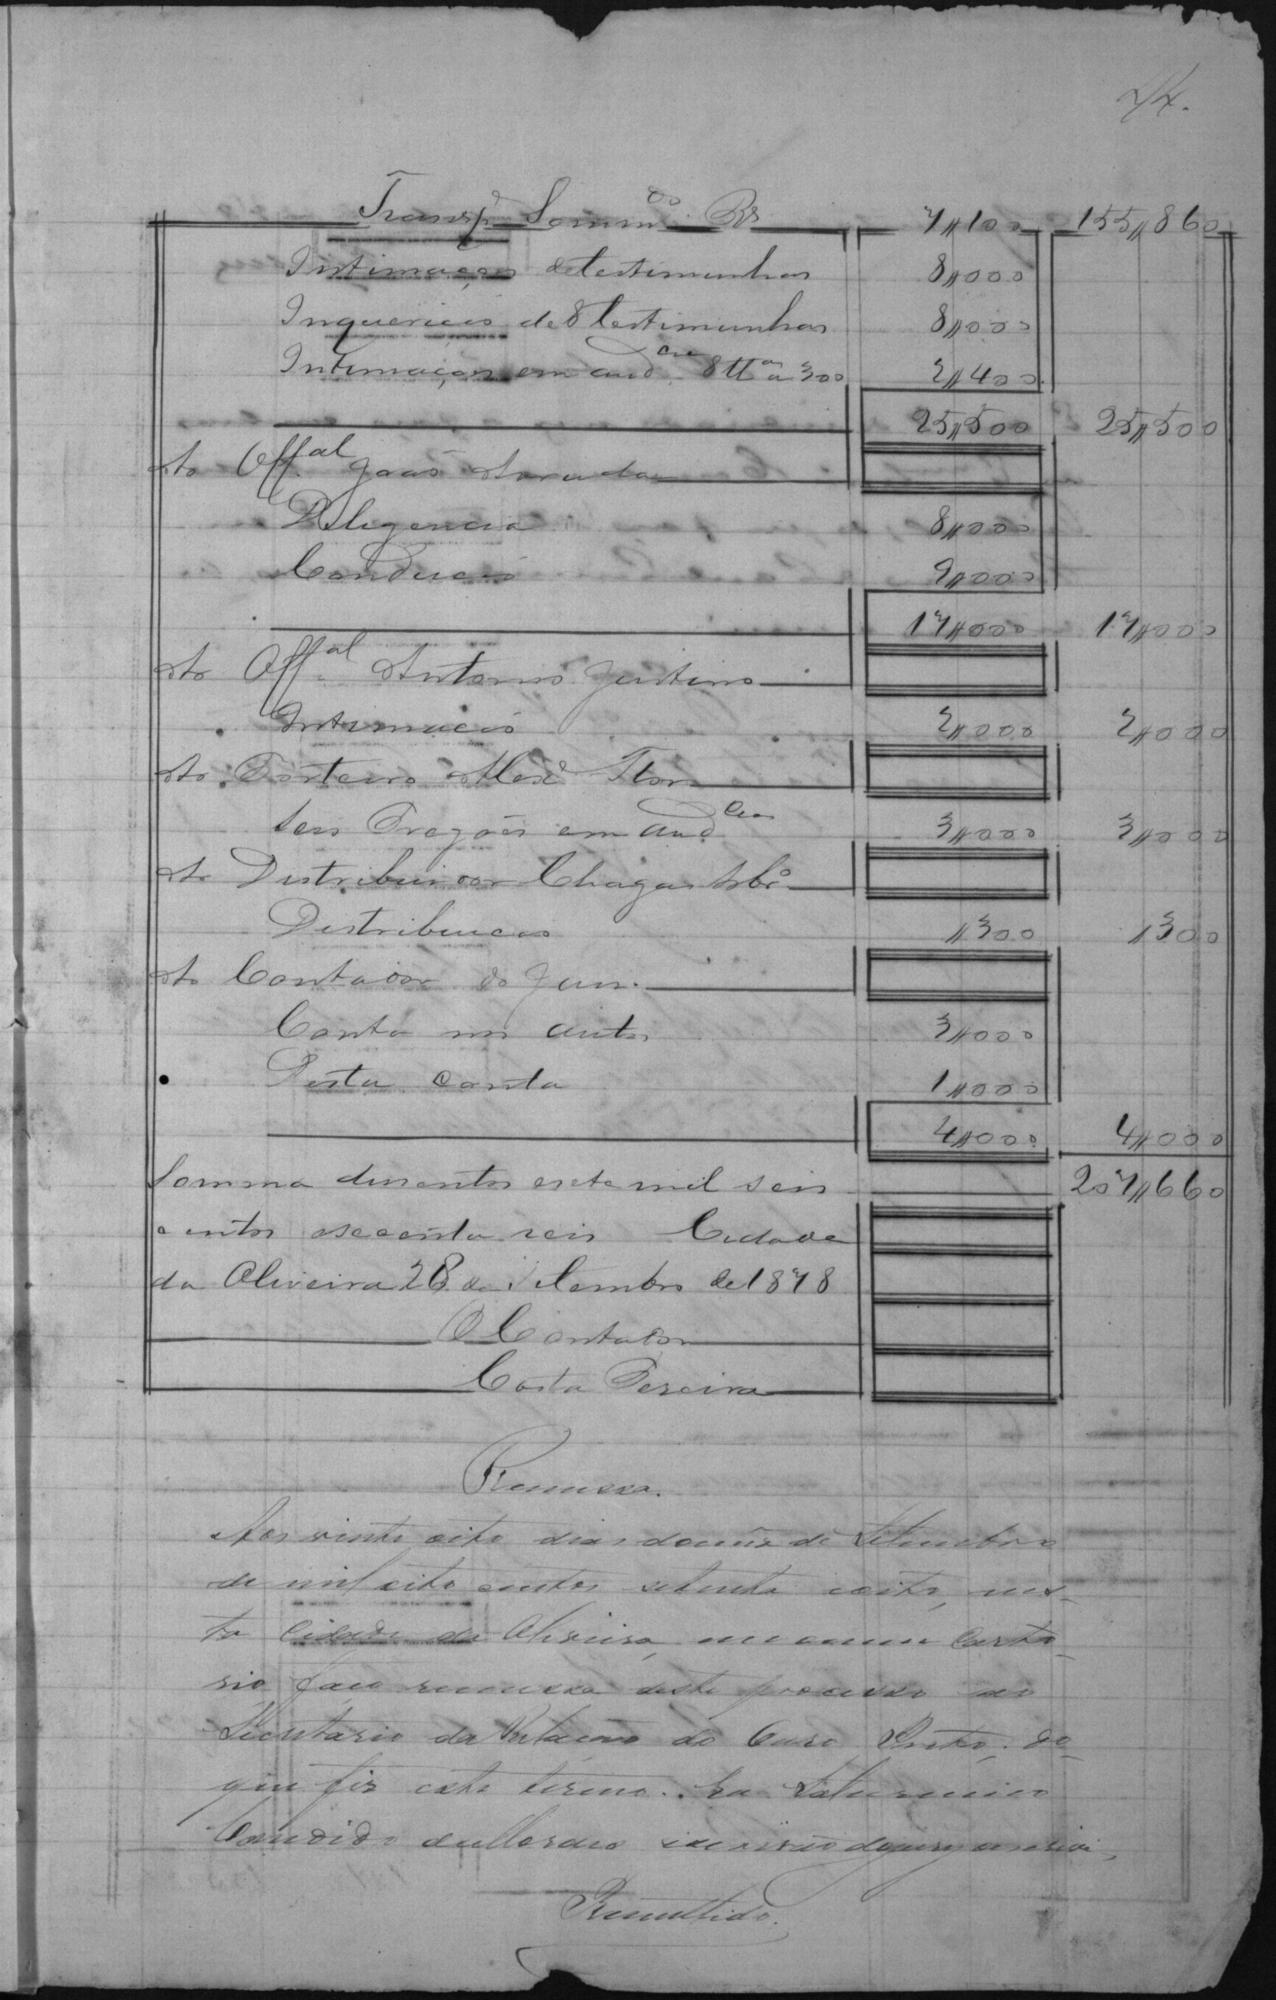 44.
Transp.e Sommdo Rs 7,,100 155,,860
Intimações detestimunhas 8,,000
Inquerição de 8 testimunhas 8,,000
Intimações em audcia 8 tta a 300 2,,400
25,,500 25,,500
Ao Offal João
Diligencia 8,,000
Condução 9,,000
17,,000 17,,000
Ao Offal Antonio Justino
Intimação 2,,000 2,,000
Ao Porteiro Flor
seis Pregões em Audcias 3,,000 3,,000
Ao Distribuidor Chagas
Distribuicão ,,300 ,,300
Ao Contador do Juiso
Conta nos autos 3,,000
Desta conta 1,,000
4,,000 4,,000
Somma dusentos esete mil seis 207,,660
centos esecenta reis Cidade
da Oliveira 28 de Setembro de 1878
O Contador
Costa Pereira
Remessa.
Aos vinte oito dias domês de Setembro
de mil oito centos setenta eoito, nes-
ta Cidade da Oliveira, em omeu Carto-
rio faço remessa deste processo ao
Secretario da Relação do Ouro Preto. do
que fiz este termo. Eu Saturnino
Candido escrivão dojury oescrivi,
Remettido.